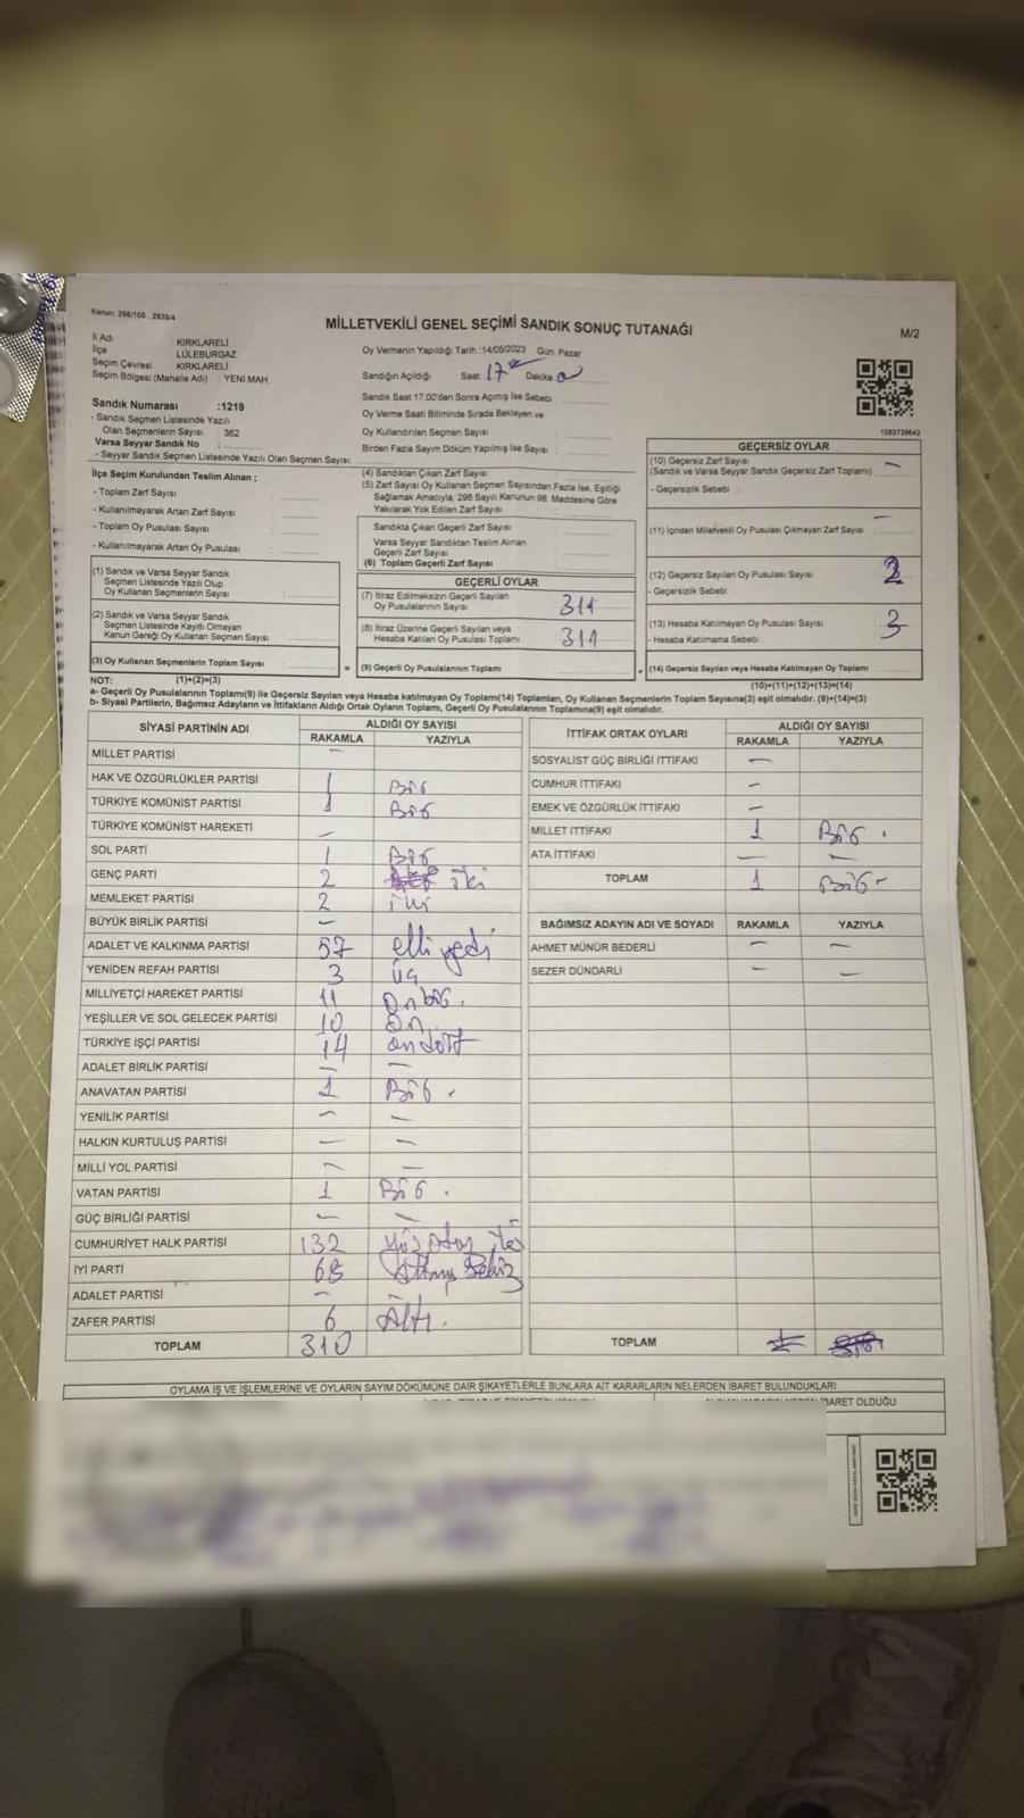 Kanun: 298/105 2839/4
MİLLETVEKİLİ GENEL SEÇİMİ SANDIK SONUÇ TUTANAĞI
M/2
İl Adı KIRKLARELİ
İlçe LÜLEBURGAZ
Seçim Çevresi KIRKLARELİ
Seçim Bölgesi (Mahalle Adı) : YENİ MAH.
Oy Vermenin Yapıldığı Tarih :14/05/2023 Gün: Pazar
Sandığın Açıldığı Saat: 17 Dakika
Sandık Saat 17.00'den Sonra Açılmış İse Sebebi
Oy Verme Saati Bitiminde Sırada Bekleyen ve
Oy Kullandırılan Seçmen Sayısı
Birden Fazla Sayım Döküm Yapılmış İse Sayısı
Sandık Numarası :1219
- Sandık Seçmen Listesinde Yazılı
Olan Seçmenlerin Sayısı 362
Varsa Seyyar Sandık No
- Seyyar Sandık Seçmen Listesinde Yazılı Olan Seçmen Sayısı:
İlçe Seçim Kurulundan Teslim Alınan ;
- Toplam Zarf Sayısı
- Kullanılmayarak Artan Zarf Sayısı
- Toplam Oy Pusulası Sayısı
- Kullanılmayarak Artan Oy Pusulası
(1) Sandık ve Varsa Seyyar Sandık
Seçmen Listesinde Yazılı Olup
Oy Kullanan Seçmenlerin Sayısı
(2) Sandık ve Varsa Seyyar Sandık
Seçmen Listesinde Kayıtlı Olmayan
Kanun Gereği Oy Kullanan Seçmen Sayısı
(3) Oy Kullanan Seçmenlerin Toplam Sayısı
(1)+(2)=(3)
(4) Sandıktan Çıkan Zarf Sayısı
(5) Zarf Sayısı Oy Kullanan Seçmen Sayısından Fazla İse, Eşitliği
Sağlamak Amacıyla, 298 Sayılı Kanunun 98. Maddesine Göre
Yakılarak Yok Edilen Zarf Sayısı
Sandıkta Çıkan Geçerli Zarf Sayısı
Varsa Seyyar Sandıktan Teslim Alınan
Geçerli Zarf Sayısı
(6) Toplam Geçerli Zarf Sayısı
GEÇERLİ OYLAR
(7) İtiraz Edilmeksizin Geçerli Sayılan
Oy Pusulalarının Sayısı 311
(8) İtiraz Üzerine Geçerli Sayılan veya
Hesaba Katılan Oy Pusulası Toplamı 311
= (9) Geçerli Oy Pusulalarının Toplamı
GEÇERSİZ OYLAR
(10) Geçersiz Zarf Sayısı
(Sandık ve Varsa Seyyar Sandık Geçersiz Zarf Toplamı) —
- Geçersizlik Sebebi
(11) İçinden Milletvekili Oy Pusulası Çıkmayan Zarf Sayısı —
(12) Geçersiz Sayılan Oy Pusulası Sayısı
- Geçersizlik Sebebi:
(13) Hesaba Katılmayan Oy Pusulası Sayısı 3
- Hesaba Katılmama Sebebi
+ (14) Geçersiz Sayılan veya Hesaba Katılmayan Oy Toplamı
(10)+(11)+(12)+(13)=(14)
NOT:
a- Geçerli Oy Pusulalarının Toplamı(9) ile Geçersiz Sayılan veya Hesaba katılmayan Oy Toplamı(14) Toplamları, Oy Kullanan Seçmenlerin Toplam Sayısına(3) eşit olmalıdır. (9)+(14)=(3)
b- Siyasi Partilerin, Bağımsız Adayların ve İttifakların Aldığı Ortak Oyların Toplamı, Geçerli Oy Pusulalarının Toplamına(9) eşit olmalıdır.
SİYASİ PARTİNİN ADI ALDIĞI OY SAYISI
RAKAMLA YAZIYLA
MİLLET PARTİSİ —
HAK VE ÖZGÜRLÜKLER PARTİSİ 1 Bir
TÜRKİYE KOMÜNİST PARTİSİ 1 Bir
TÜRKİYE KOMÜNİST HAREKETİ —
SOL PARTİ 1 Bir
GENÇ PARTİ 2 iki
MEMLEKET PARTİSİ 2 iki
BÜYÜK BİRLİK PARTİSİ —
ADALET VE KALKINMA PARTİSİ 57 elli yedi
YENİDEN REFAH PARTİSİ 3 üç
MİLLİYETÇİ HAREKET PARTİSİ 11 Onbir.
YEŞİLLER VE SOL GELECEK PARTİSİ 10 On
TÜRKİYE İŞÇİ PARTİSİ 14 ondört
ADALET BİRLİK PARTİSİ — —
ANAVATAN PARTİSİ 1 Bir.
YENİLİK PARTİSİ — —
HALKIN KURTULUŞ PARTİSİ — —
MİLLİ YOL PARTİSİ — —
VATAN PARTİSİ 1 Bir.
GÜÇ BİRLİĞİ PARTİSİ — —
CUMHURİYET HALK PARTİSİ 132 yüzotuz iki
İYİ PARTİ 68 Altmış Sekiz
ADALET PARTİSİ — —
ZAFER PARTİSİ 6 Altı.
TOPLAM 310
İTTİFAK ORTAK OYLARI ALDIĞI OY SAYISI
RAKAMLA YAZIYLA
SOSYALİST GÜÇ BİRLİĞİ İTTİFAKI —
CUMHUR İTTİFAKI —
EMEK VE ÖZGÜRLÜK İTTİFAKI —
MİLLET İTTİFAKI 1 Bir.
ATA İTTİFAKI — —
TOPLAM 1 Bir-
BAĞIMSIZ ADAYIN ADI VE SOYADI RAKAMLA YAZIYLA
AHMET MÜNÜR BEDERLİ — —
SEZER DÜNDARLI — —
TOPLAM
OYLAMA İŞ VE İŞLEMLERİNE VE OYLARIN SAYIM DÖKÜMÜNE DAİR ŞİKAYETLERLE BUNLARA AİT KARARLARIN NELERDEN İBARET BULUNDUKLARI
İBARET OLDUĞU